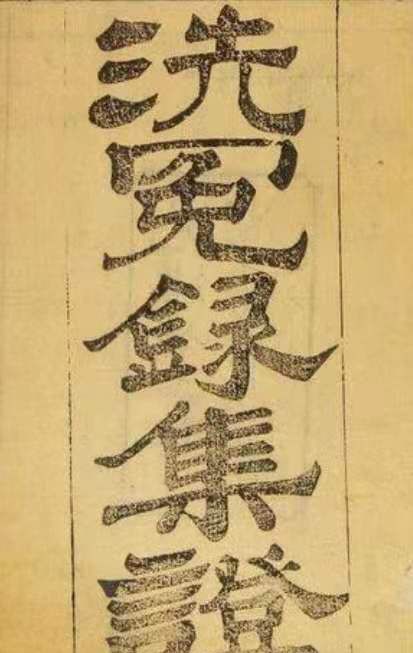 洗冤録集證